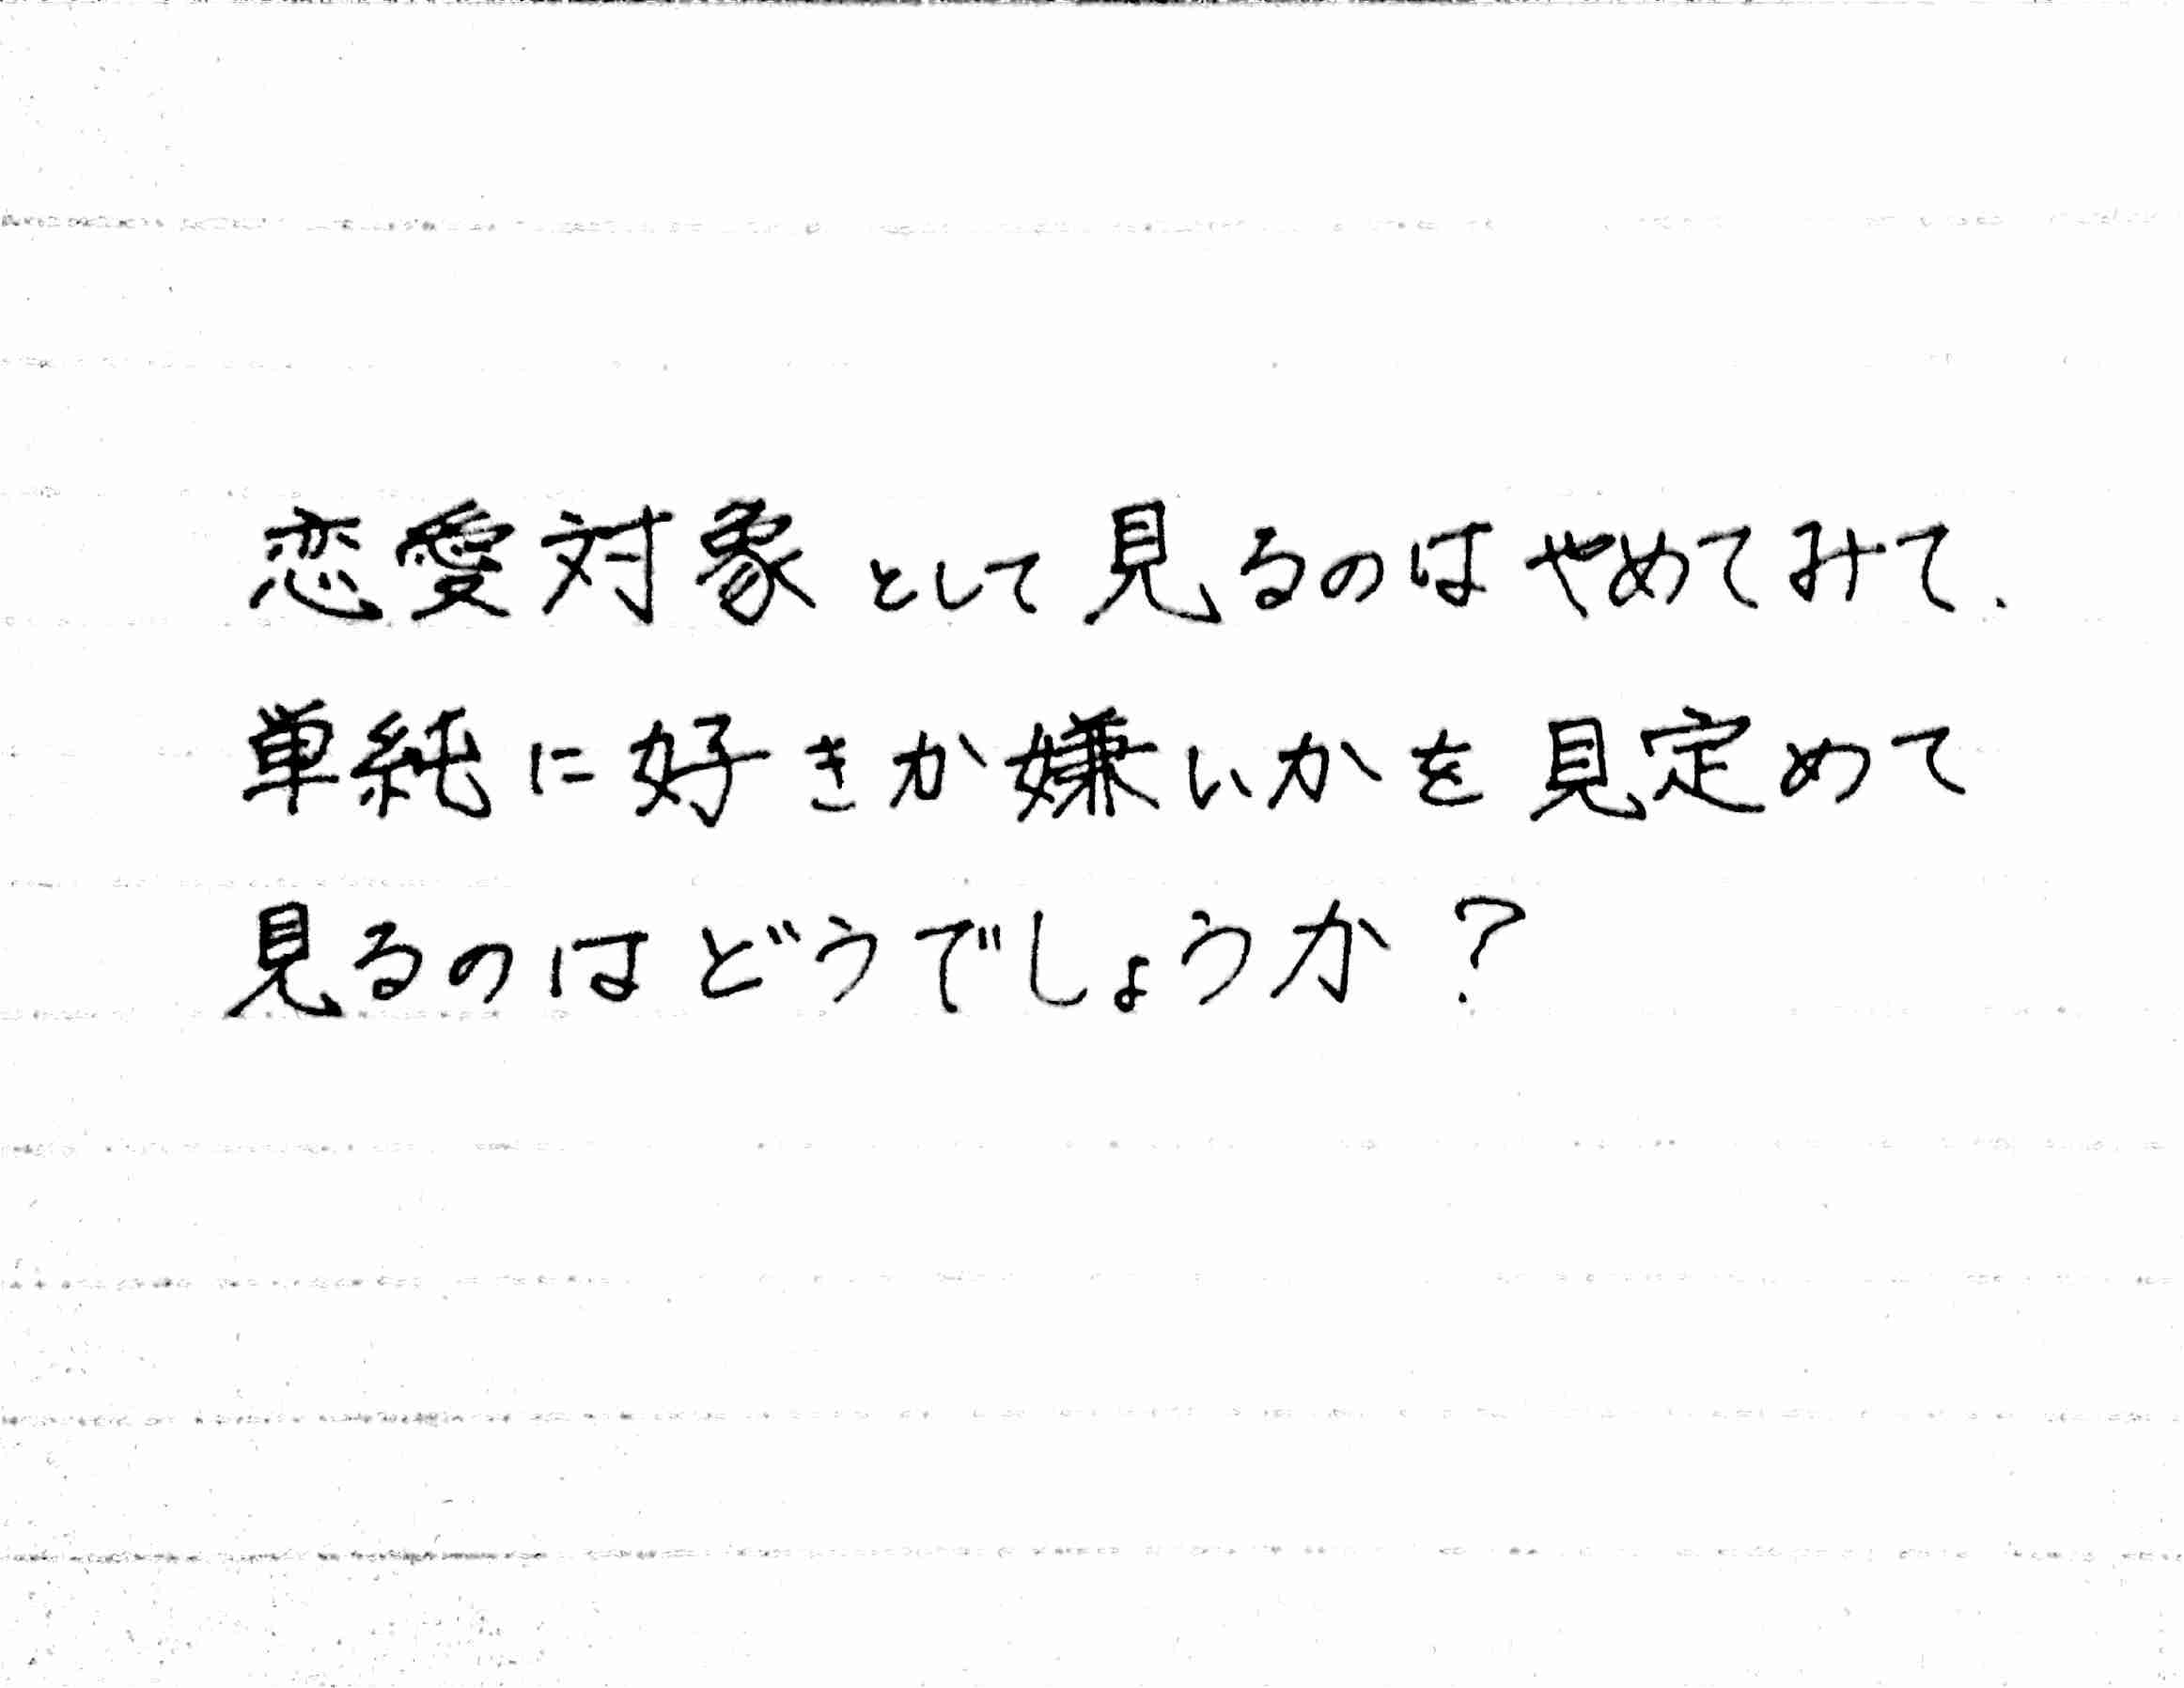 恋愛対象として見るのはやめてみて.
単純に好きか嫌いかを見定めて
見るのはどうでしょうか?